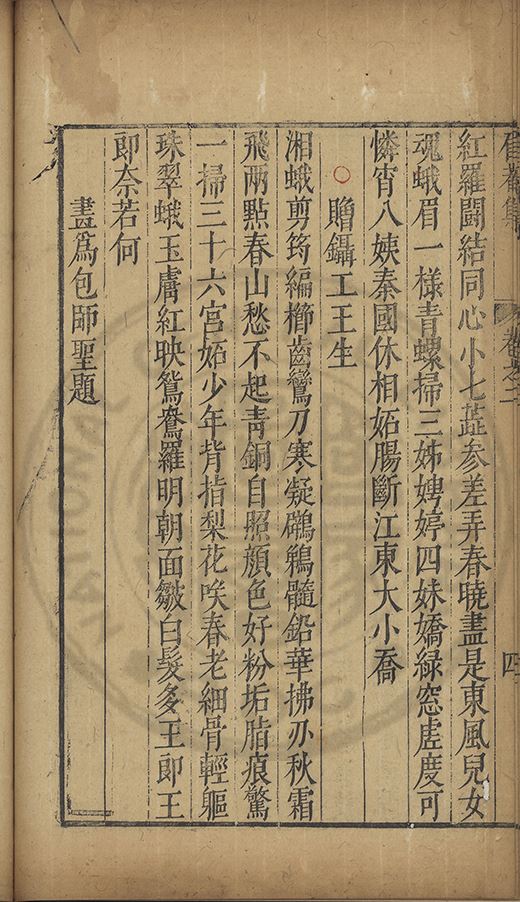 卷之二
四
紅羅鬪結同心小七蕋参差弄春曉盡是東風兒女
魂蛾眉一様青螺掃三姊娉婷四妹嬌綠窓虗度可
憐宵八姨秦國休相妬腸斷江東大小喬
○
贈鑷工王生
湘蛾剪筠編櫛齒鸞刀寒凝鸊鵜髓鉛華拂刅秋霜
飛兩點春山愁不起青銅自照顔色好粉垢脂痕驚
一掃三十六宮妬少年背指梨花咲春老細骨輕軀
珠翠蛾玉膚紅映鴛鴦羅明朝面皺白髮多王即王
即奈若何
畫爲包師聖題